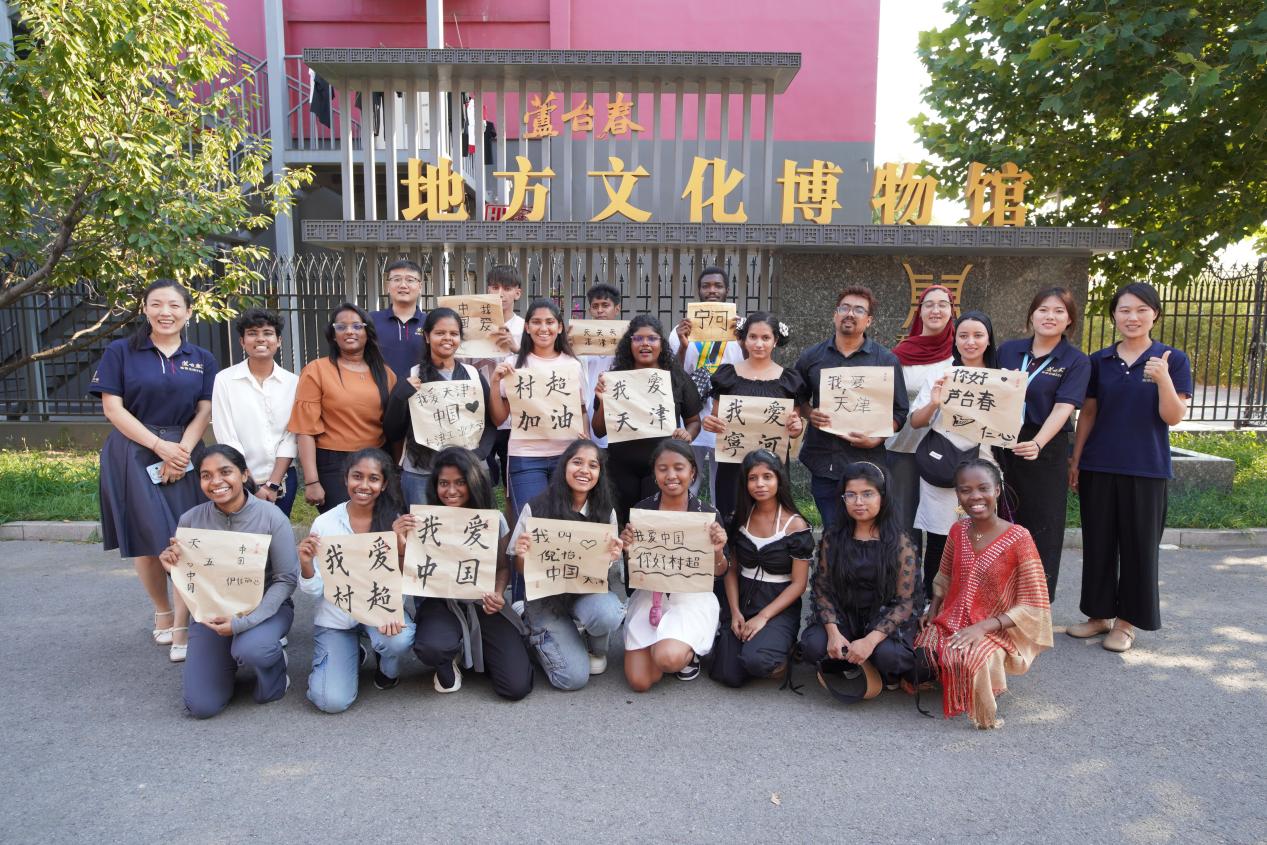 蘆台春
地方文化博物馆
中我
国爱
宁河
我爱天津
中国
天津工业大学
村超
加油
我爱
天津
我爱
寧河
我爱
天津
你好
芦台春
仁心
天
五
中国
中国
我爱
村超
我爱
中国
我叫
倪怡,
中国天津
我爱中国
你好村超